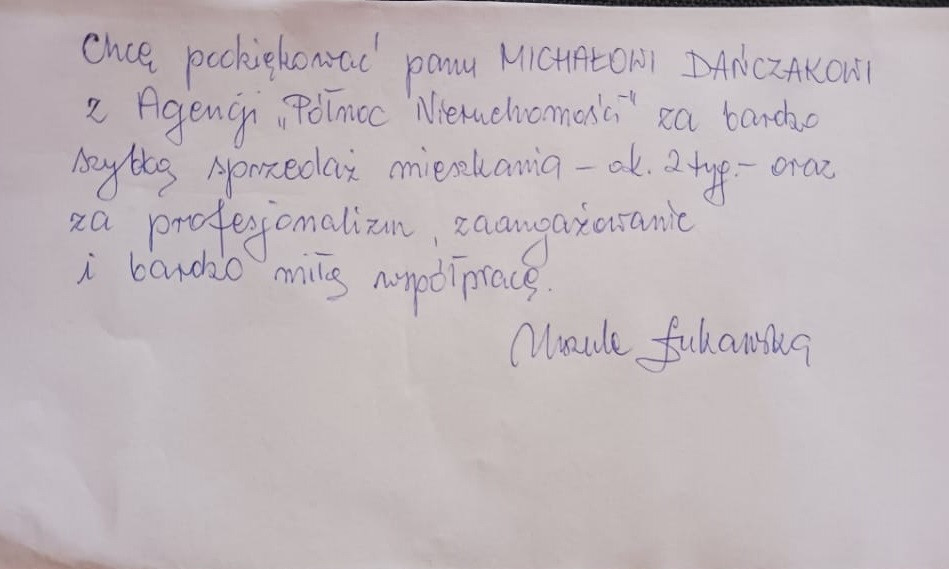 Chcę podziękować panu MICHAŁOWI DAŃCZAKOWI
z Agencji „Północ Nieruchomości" za bardzo
szybką sprzedaż mieszkania – ok. 2 tyg. – oraz
za profesjonalizm, zaangażowanie
i bardzo miłą współpracę.
Urszula Łukawska